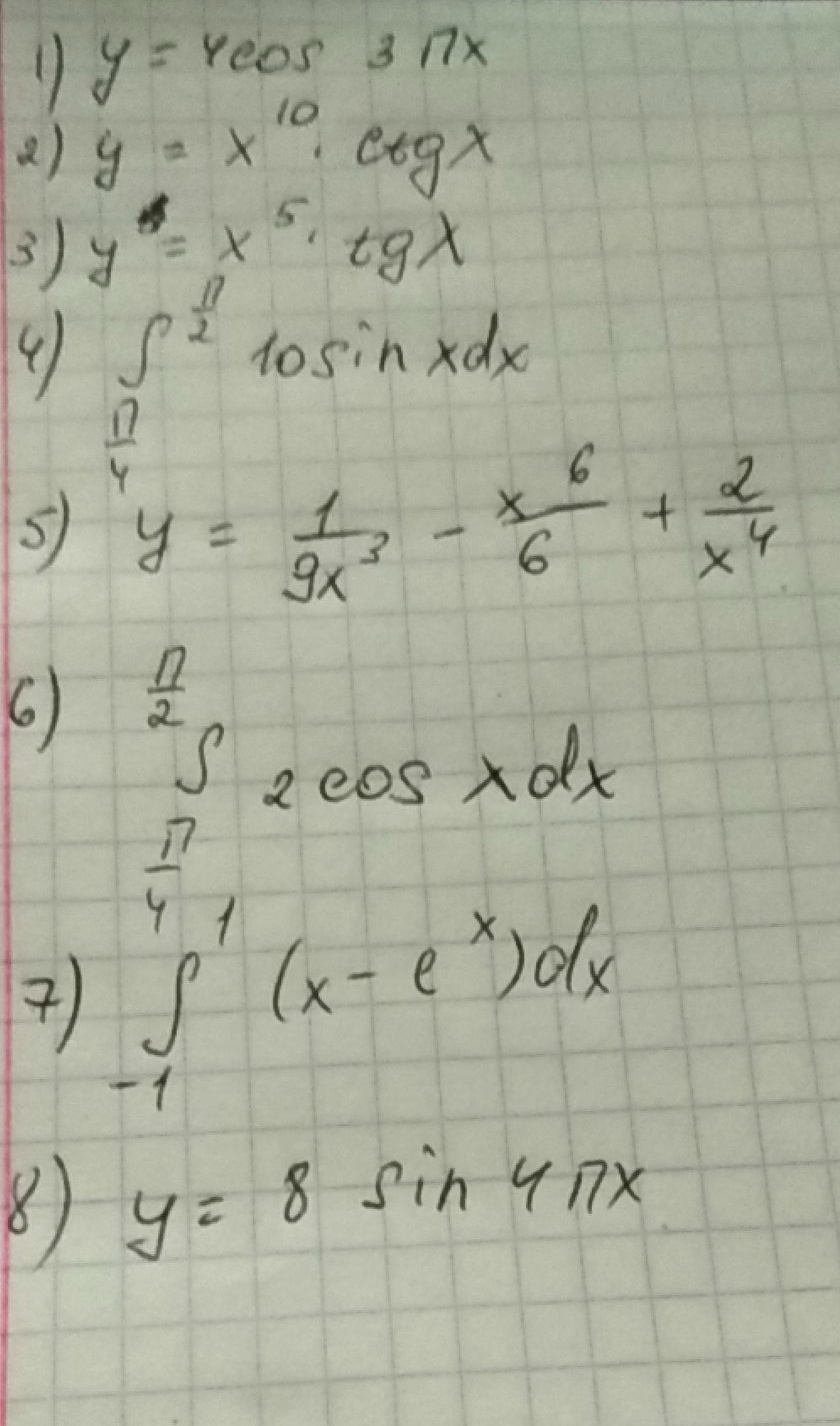 1) y = 4cos 3πx
2) y = x¹⁰ · ctgx
3) y = x⁵ · tgx
4) ∫_{π/4}^{π/2} 10sin xdx
5) y = 1/(9x³) - x⁶/6 + 2/x⁴
6) ∫_{π/4}^{π/2} 2cos xdx
7) ∫_{-1}^{1} (x - eˣ)dx
8) y = 8 sin 4πx